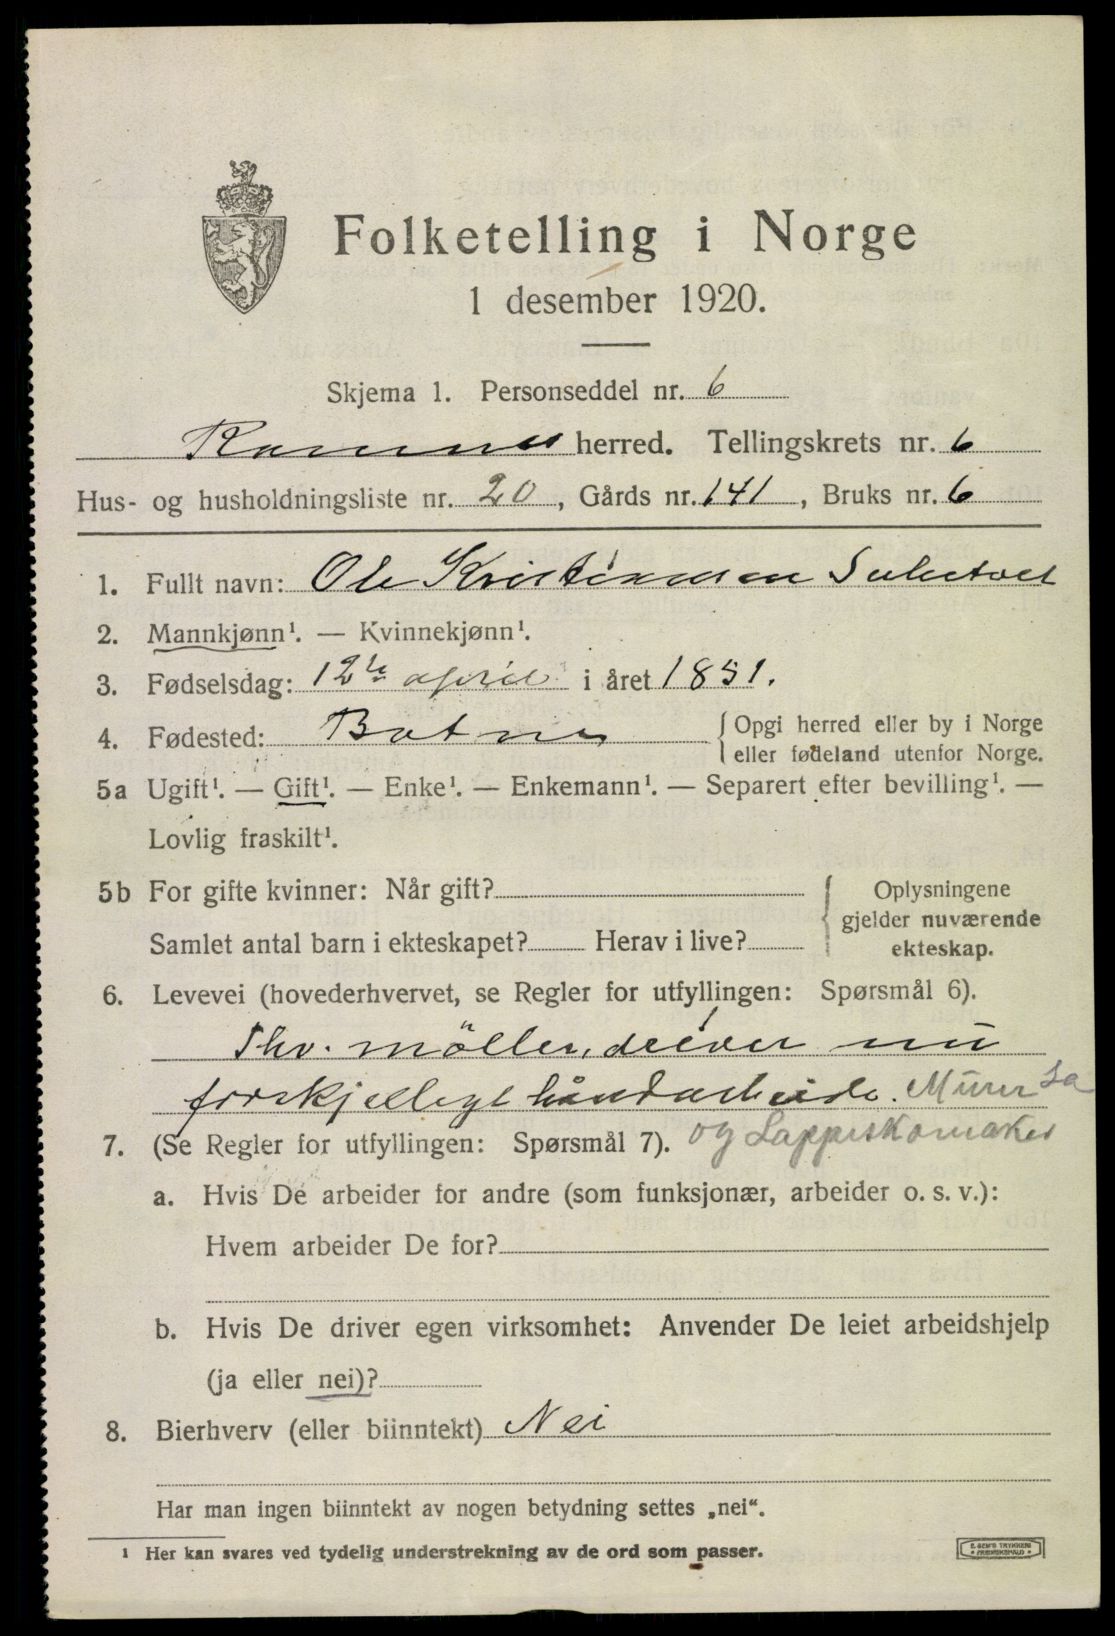 Folketelling i Norge
1 desember 1920.
Skjema 1. Personseddel nr. 6
Ramnes herred. Tellingskrets nr. 6
Hus- og husholdningsliste nr. 20, Gårds nr. 141, Bruks nr. 6
1. Fullt navn: Ole Kristiansen
2. Mannkjønn¹. — Kvinnekjønn¹.
3. Fødselsdag: 12te april i året 1851.
4. Fødested: Botne { Opgi herred eller by i Norge
eller fødeland utenfor Norge.
5a Ugift¹. — Gift¹. — Enke¹. — Enkemann¹. — Separert efter bevilling¹. —
Lovlig fraskilt¹.
5b For gifte kvinner: Når gift?
Samlet antal barn i ekteskapet? Herav i live?
{ Oplysningene
gjelder nuværende
ekteskap.
6. Levevei (hovederhvervet, se Regler for utfyllingen: Spørsmål 6).
Fhv. möller, driver nu
forskjelligt håndarbeide. Murer
og Lappeskomaker
7. (Se Regler for utfyllingen: Spørsmål 7).
a. Hvis De arbeider for andre (som funksjonær, arbeider o. s. v.):
Hvem arbeider De for?
b. Hvis De driver egen virksomhet: Anvender De leiet arbeidshjelp
(ja eller nei)?
8. Bierhverv (eller biinntekt) Nei
Har man ingen biinntekt av nogen betydning settes „nei“.
¹ Her kan svares ved tydelig understrekning av de ord som passer.
E. SEM'S TRYKKERI
FREDRIKSHALD